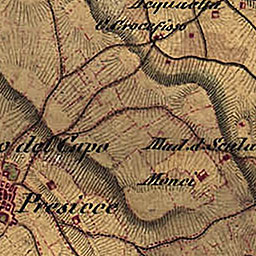 Acquarica
Il Crocefisso
o del Capo
Mad. d. Scala
Monci
Presicce